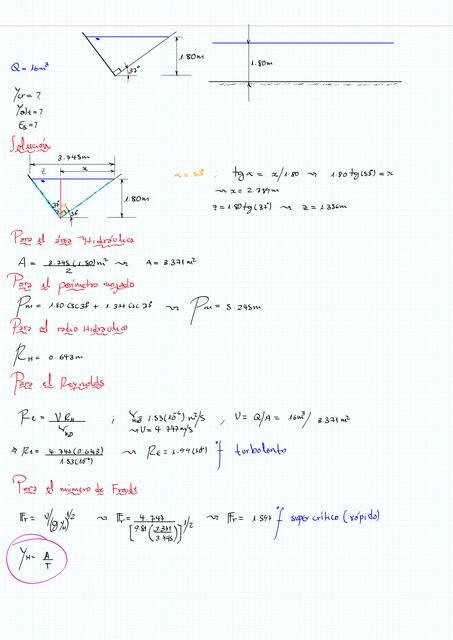 1.80m
1.80m
37°
Q = 16m³
Ycr = ?
Es = ?
Solución
3.745m
z x
1.80m
tg α = x/1.80 ⇝ 1.80 tg(53°) = x
⇝ x = 2.389m
z = 1.80 tg(37°) ⇝ z = 1.356m
Para el área Hidráulica
A = 3.745(1.80)m² / 2 ⇝ A = 3.371m²
Para el perímetro mojado
⇝ Pm = 5.245m
Para el radio Hidraulico
RH = 0.643m
Para el Reynolds
Re = V RH / ; 1.53(10⁻⁶) m²/s , V = Q/A = 16m³/ 3.371m²
⇝ V = 4.747m/s
⇒ Re = 4.747(0.643) / 1.53(10⁻⁶) ⇝ Re = 1.99(10⁶) turbolento
Para el número de Froude
Fr = V/(g YH)^1/2 ⇝ Fr = 4.747 / [9.81(3.371/3.745)]^1/2 ⇝ Fr = 1.597 supercrítico (rápido)
YH = A/T